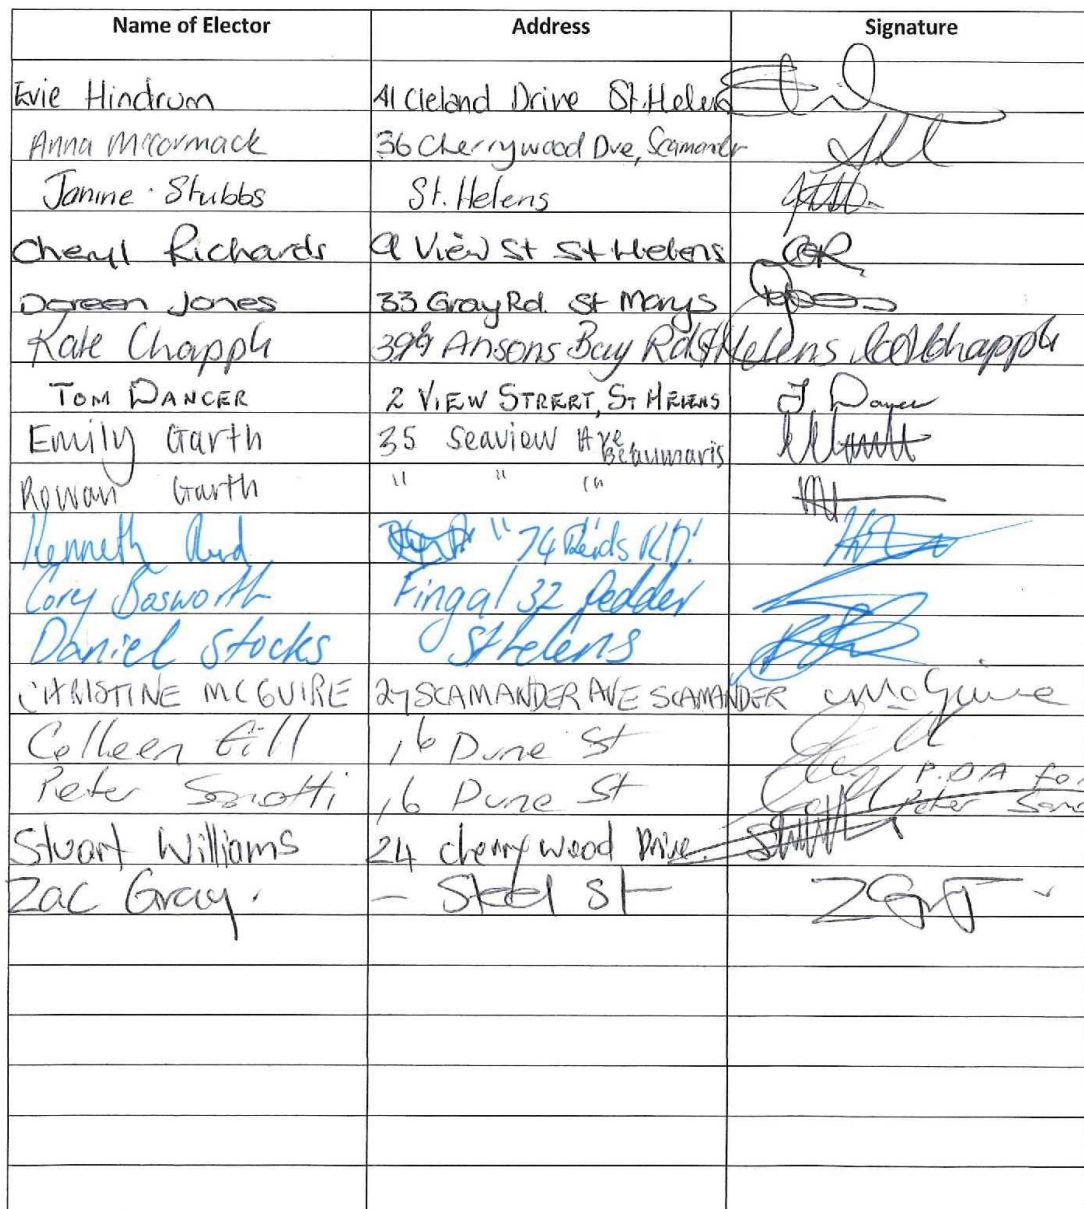 Name of Elector Address Signature
Evie Hindrum 41 Cleland Drive St.Helens
Anna McCormack 36 Cherrywood Dve, Scamander
Janine Stubbs St. Helens
Cheryl Richards 9 View St St Helens CGR
Doreen Jones 33 Gray Rd. St Marys
Kate Chapple Ansons Bay Rd St Helens Chapple
TOM DANCER 2 VIEW STREET, ST HELENS T Dancer
Emily Garth 35 Seaview Ave Beaumaris
Rowan Garth " " "
Kenneth " 74 Reids RD.
Cory Bosworth Fingal 32 Pedder
Daniel Stocks St Helens
CHRISTINE MCGUIRE 27 SCAMANDER AVE SCAMANDER CMcGuire
Colleen Gill 16 Dune St
Peter 16 Dune St P.O.A for Peter
Stuart Williams 24 cherrywood Drive.
Zac Gray. - Steel St ZGray